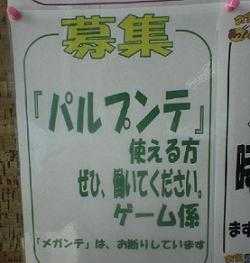 募集
『パルプンテ』
使える方
ぜひ、働いてください。
ゲーム係
「メガンテ」は、お断りしています